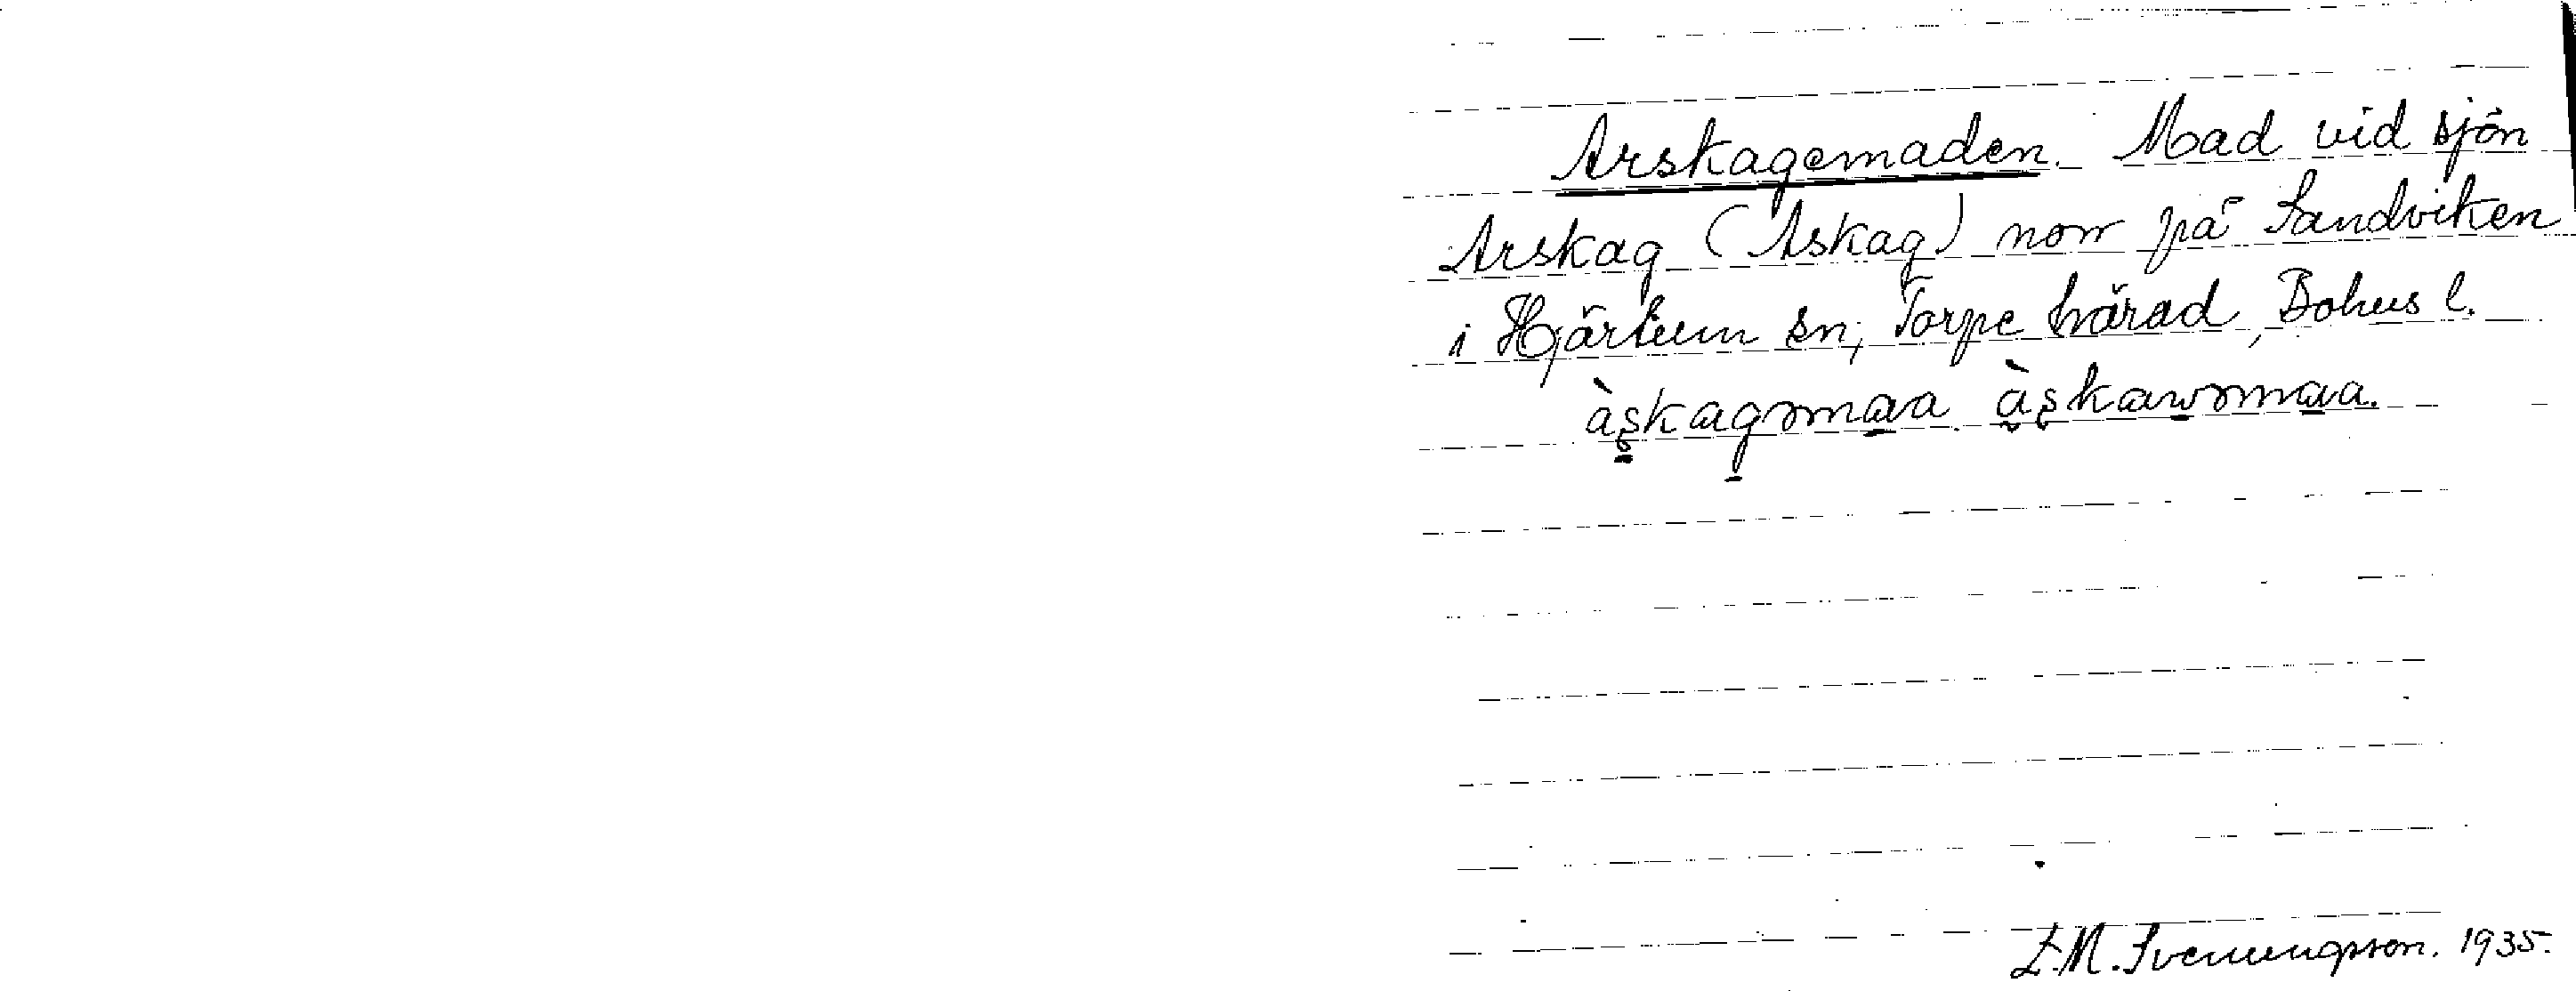 Arskagemaden. Mad vid sjön
Arskag (Askag) norr på Sandviken
i Hjärtum sn, Torpe härad, Bohus l.
àskagəmaa àskawəmaa.
S.M. Svenungsson. 1935.